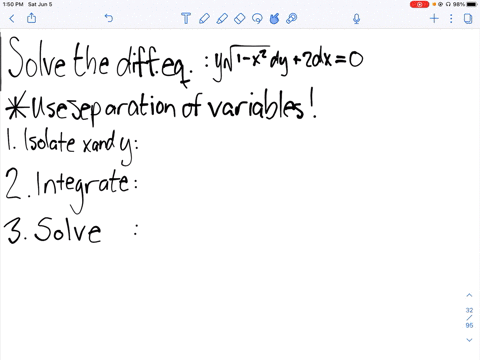 1:50 PM Sat Jun 5
98%
Solve the diff.eq. : y√1-x² dy + 2dx = 0
* Use separation of variables!
1. Isolate x and y:
2. Integrate:
3. Solve :
32
/
95